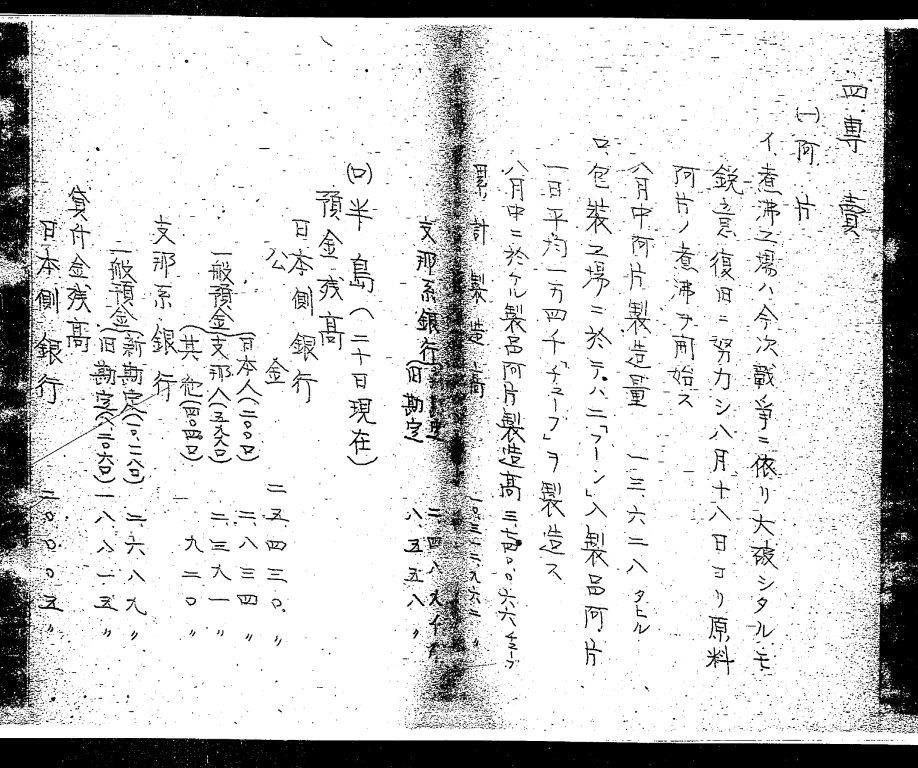 四、専賣
(一)阿片
イ、煮沸工場ハ今次戰爭ニ依リ大破シタルモ
鋭意復旧ニ努力シ八月十八日ヨリ原料
阿片ノ煮沸ヲ開始ス
八月中阿片製造量 一三、六二八タヒル
ロ、包裝工場ニ於テハ二「フーン」入製品阿片
一日平均一万四千「チューブ」ヲ製造ス
八月中ニ於ケル製品阿片製造高 三七四〇、〇六六チューブ
累計製造高
支那系銀行
旧勘定 八五五八〃
(ロ)半島(二十日現在)
預金残高
日本側銀行
公金 二五四三〇、〃
一般預金
日本人(二〇〇口) 二、八三四〃
支那人(五九六口) 二、三九一〃
其他(四〇四口) 九二〇〃
支那系銀行
一般預金
新勘定(一〇、二八口) 二、六八九〃
旧勘定(二〇六口) 一八八一五〃
貸付金残高
日本側銀行 二〇、〇〇五〃